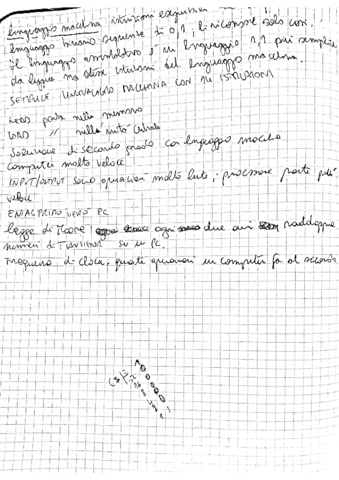 linguaggio macchina istruzioni
linguaggio binario sequenze di 0,1, li riconosce solo così.
Il linguaggio assemblatore è un linguaggio 1,1 più semplice
da leggere ma stesse istruzioni del linguaggio macchina.
SEMPLICE LINGUAGGIO MACCHINA CON ISTRUZIONI
porta nella memoria
LOAD // nella unità
Soluzione di secondo grado con linguaggio macchina
computer molto veloce
INPUT/OUTPUT sono operazioni molto lente, processore parte più
veloce
ENIAC PRIMO VERO PC
legge di Moore: ogni due anni raddoppia
numeri di transistor su un PC.
Frequenza di Clock, quante operazioni un computer fa al secondo